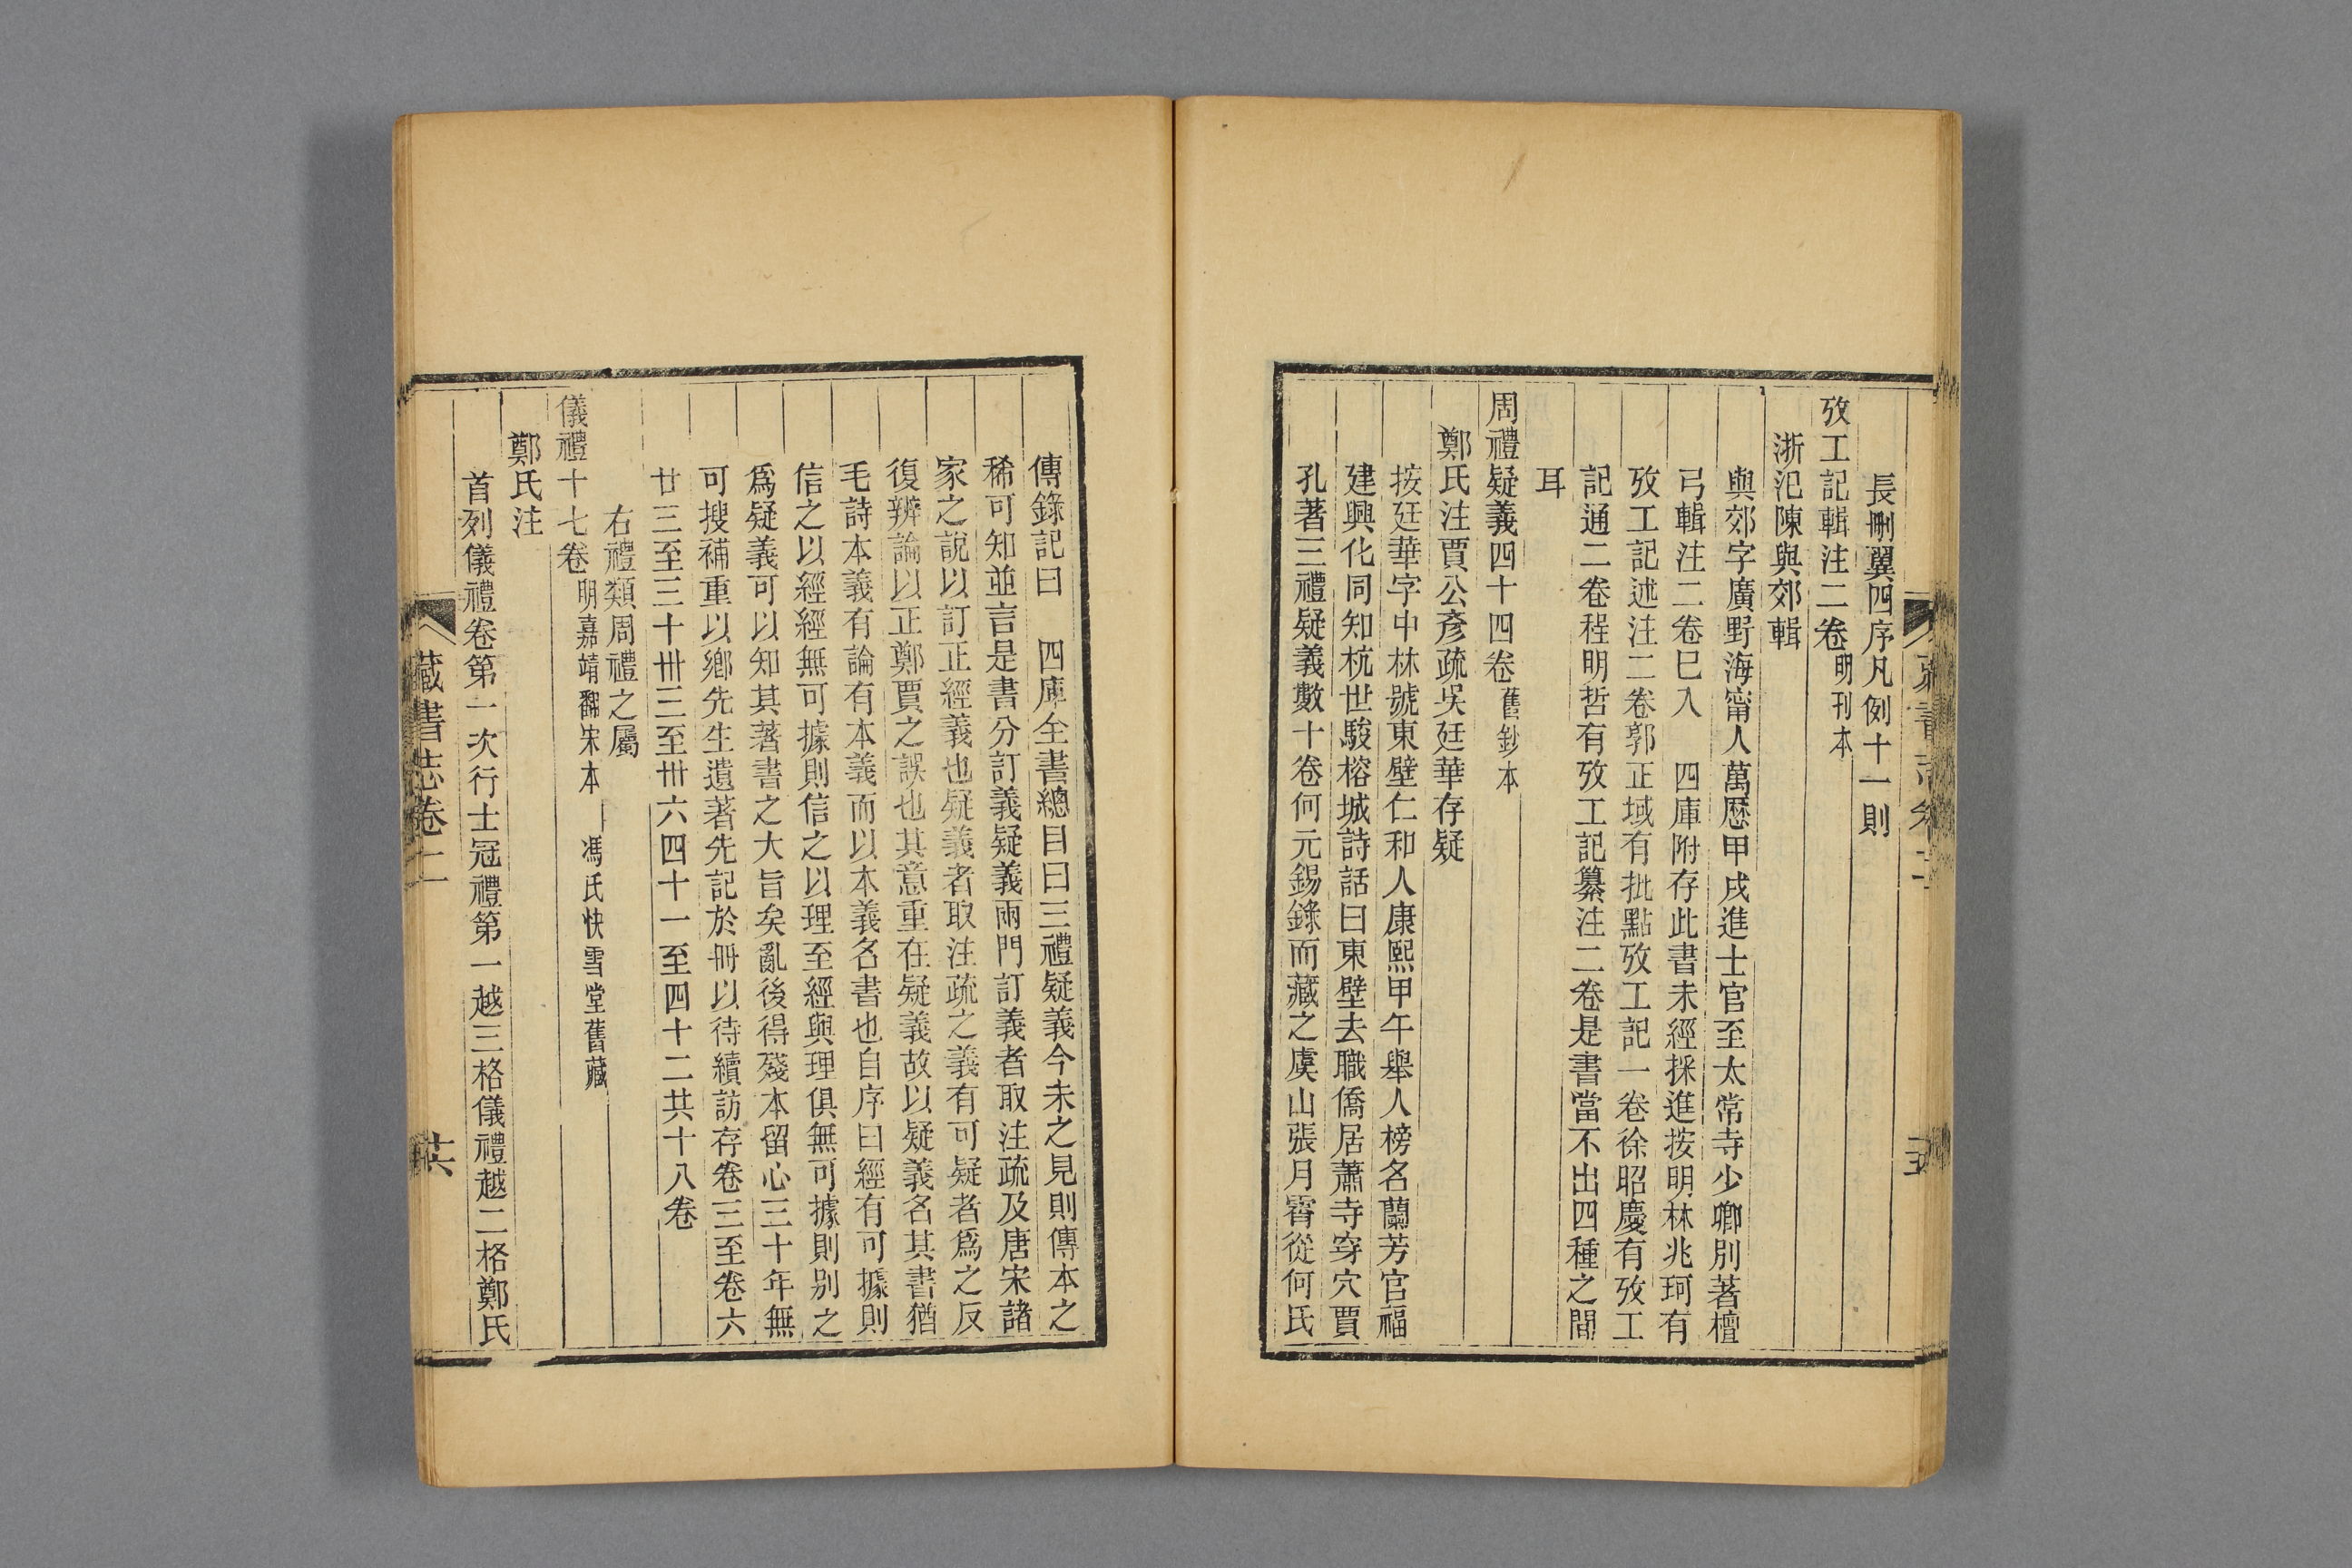 長刪翼四序凡例十一則
攷工記輯注二卷 明刊本
浙汜陳與郊輯
與郊字廣野海甯人萬歷甲戌進士官至太常寺少卿別著檀
弓輯注二卷巳入　四庫附存此書未經採進按明林兆珂有
攷工記述注二卷郭正域有批點攷工記一卷徐昭慶有攷工
記通二卷程明哲有攷工記纂注二卷是書當不出四種之間
耳
周禮疑義四十四卷 舊鈔本
鄭氏注賈公彥疏吳廷華存疑
按廷華字中林號東壁仁和人康熙甲午舉人榜名蘭芳官福
建興化同知杭世駿榕城詩話曰東壁去職僑居蕭寺穿穴賈
孔著三禮疑義數十卷何元錫錄而藏之虞山張月霄從何氏
傳錄記曰　四庫全書總目曰三禮疑義今未之見則傳本之
稀可知並言是書分訂義疑義兩門訂義者取注疏及唐宋諸
家之說以訂正經義也疑義者取注疏之義有可疑者爲之反
復辨論以正鄭賈之誤也其意重在疑義故以疑義名其書猶
毛詩本義有論有本義而以本義名書也自序曰經有可據則
信之以經經無可據則信之以理至經與理俱無可據則别之
爲疑義可以知其著書之大旨矣亂後得殘本留心三十年無
可搜補重以鄉先生遺著先記於冊以待續訪存卷三至卷六
廿三至三十卅三至卅六四十一至四十二共十八卷
右禮類周禮之屬
儀禮十七卷 明嘉靖翻宋本　馮氏快雪堂舊藏
鄭氏注
首列儀禮卷第一次行士冠禮第一越三格儀禮越二格鄭氏
藏書志卷二
十六